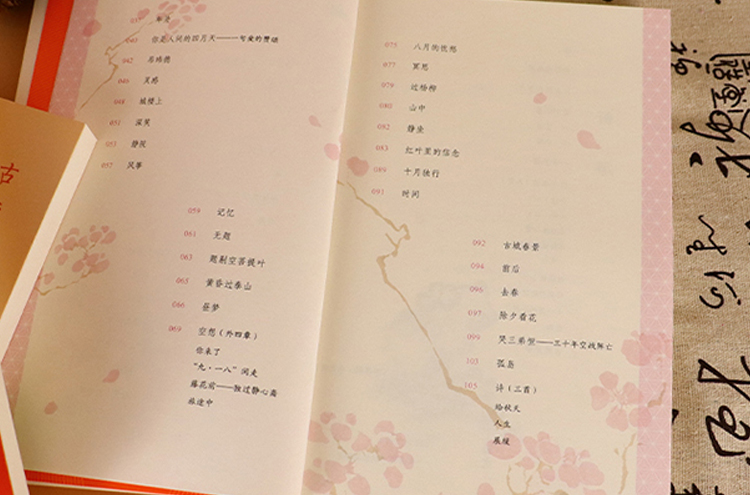 037 年关
040 你是人间的四月天——一句爱的赞颂
042 吊玮德
046 灵感
048 城楼上
051 深笑
053 静院
057 风筝
059 记忆
061 无题
063 题剔空菩提叶
065 黄昏过泰山
066 昼梦
069 空想（外四章）
你来了
“九·一八”闲走
藤花前——独过静心斋
旅途中
075 八月的忧愁
077 冥思
079 过杨柳
080 山中
082 静坐
083 红叶里的信念
089 十月独行
091 时间
092 古城春景
094 前后
096 去春
097 除夕看花
099 哭三弟恒——三十年空战阵亡
103 孤岛
105 诗（三首）
给秋天
人生
展缓
古